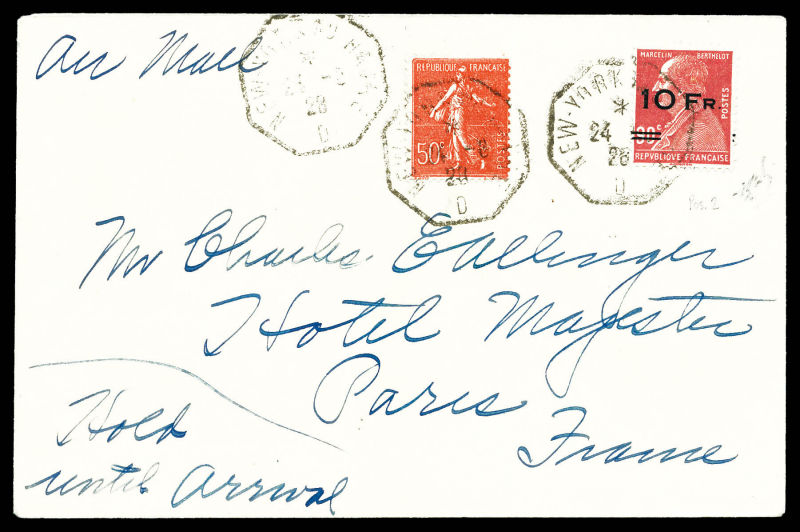 Air Mail
NEW-YORK AU HAVRE
*
24 -8
28
D
REPUBLIQUE FRANCAISE
50c
POSTES
-8
28
D
MARCELIN BERTHELOT
10 FR
90c
POSTES
REPVBLIQVE FRANÇAISE
NEW-YORK
*
24
28
D
Pos. 2
Mr Charles Edlinger
Hotel Majestic
Paris
France
Hold
until Arrival